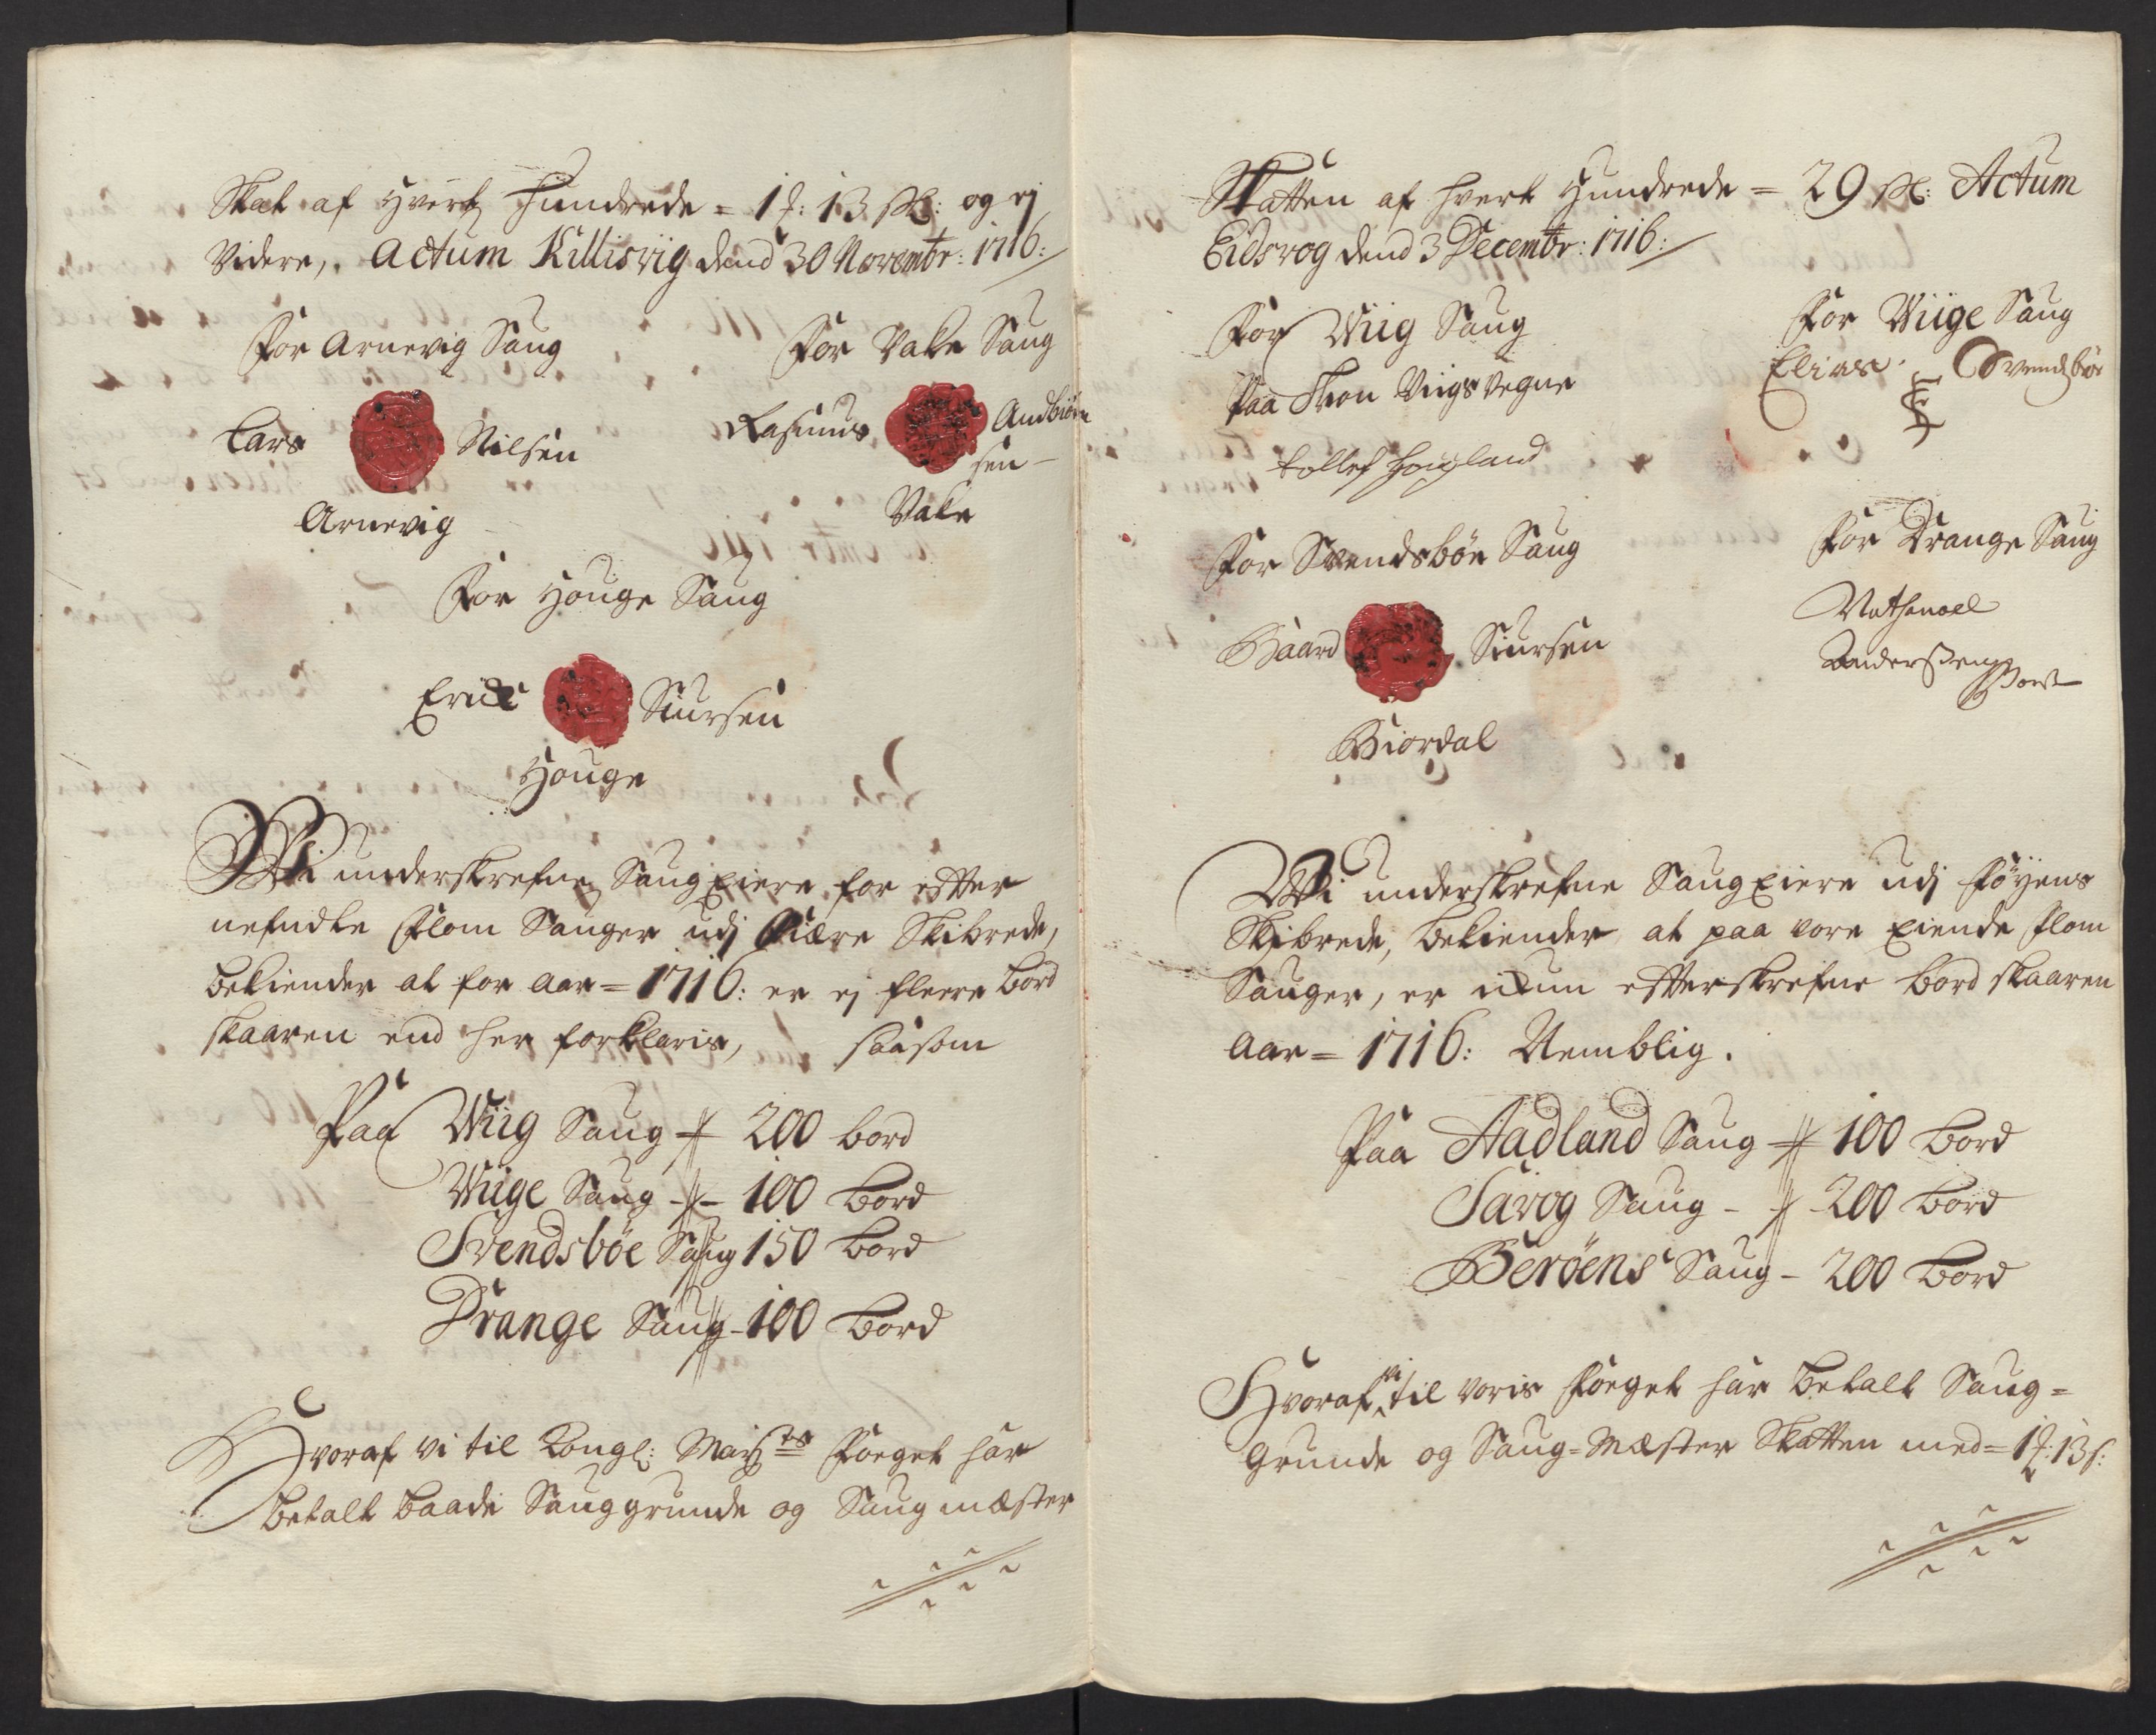 Skat af hvert Hundrede = 1 f: 13 sk: og ej
Videre, Actum Killisvig dend 30 Novembr: 1716:
For Arnevig Saug
For Vake Saug
Lars Nilsen
Arnevig
Rasmus Andbiørn
sen
Vake
For Houge Saug
Erick Siursen
Houge
Wi underskrefne Saug Eiere for efter
nefndte Flom Sauger udj Fiære Skibrede,
bekiender at for Aar = 1716: er ej fleere bord
skaaren end her forklaris, saasom
Paa Wiig Saug 200 bord
Wiige Saug - 100 Bord
Svendsbøe Saug 150 Bord
Drange Saug - 100 Bord
Hvoraf vi til Kongl: Mayts Foeget har
betalt baade Sauggrunde og Saugmæster
Skatten af hvert Hundrede = 29 sk: Actum
Eidsvog dend 3 Decembr: 1716:
For Wiig Saug
Paa Viigs Vegne
tollef Hougland
For Wiige Saug
Elias Svendsbøe
For Svendsbøe Saug
Baard Siursen
Biordal
For Drange Saug
Nathanael
Anderssen
Wi underskrefne Saug Eiere udj Føyens
Skibrede, bekiender at paa vore Eiende flom
Sauger, er ickun efterskrefne bord skaaren
Aar = 1716: Nemblig.
Paa Aadland Saug 100 Bord
Sævog Saug - 200 Bord
Berøens Saug - 200 Bord
Hvoraf vi til voris Foeget har betalt Saug =
Grunde og Saug = Mæster Skatten med = 1 f: 13 s: